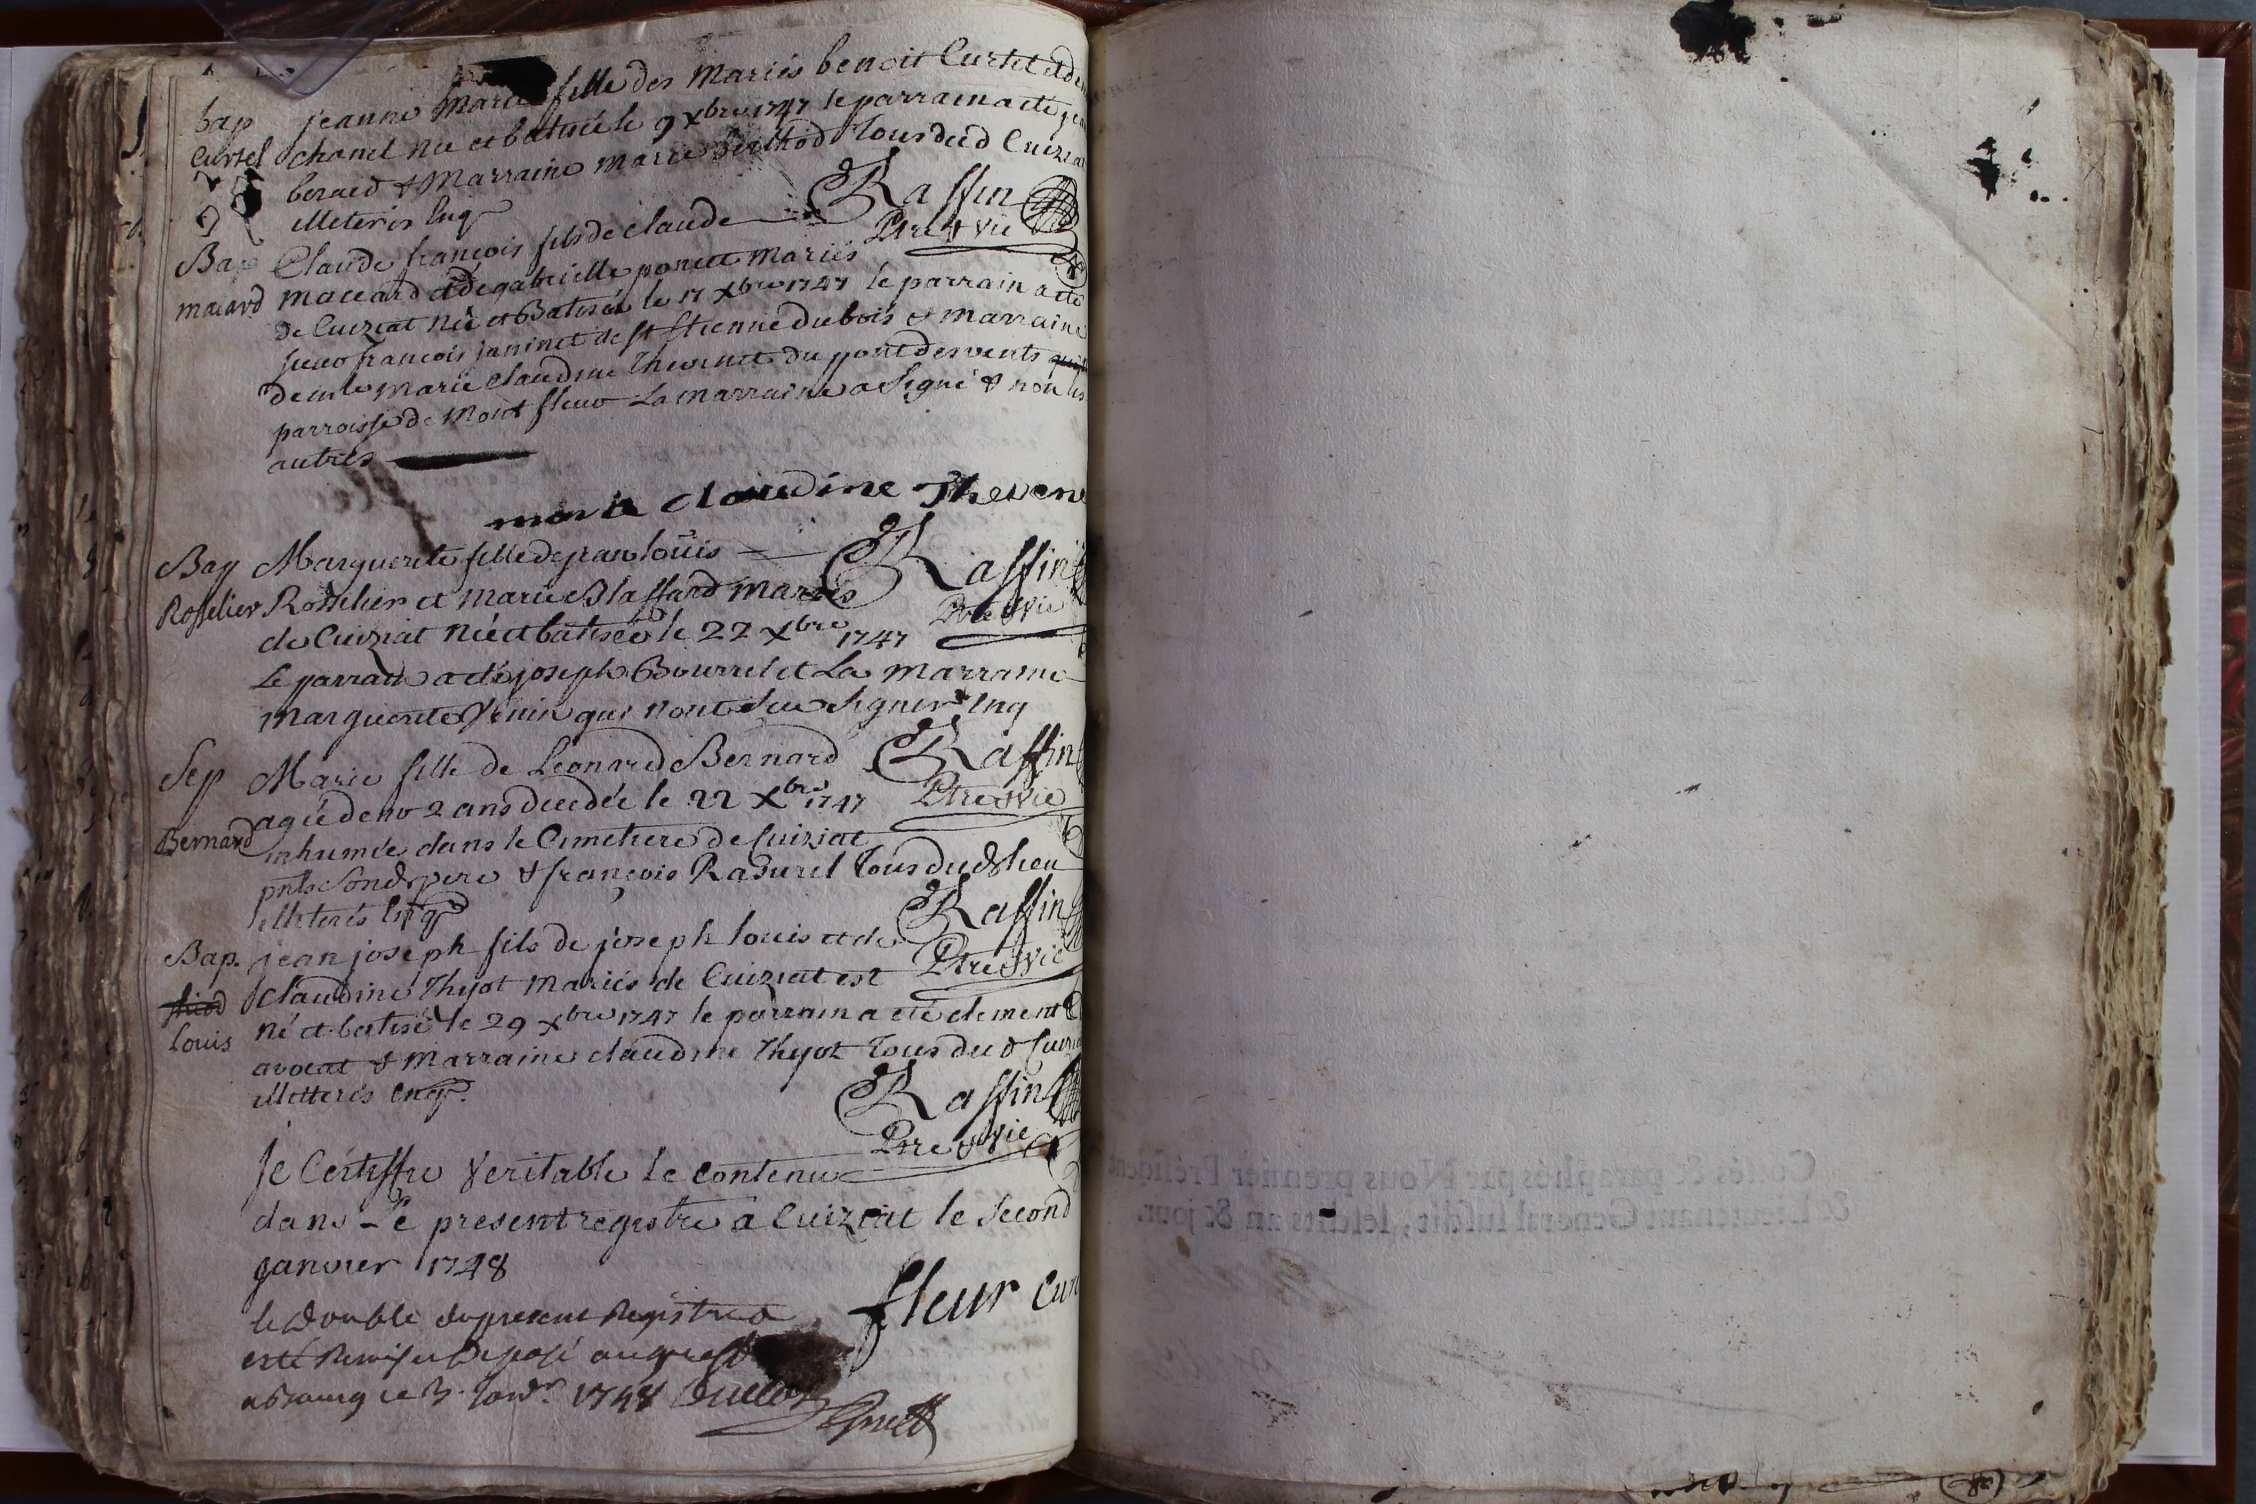 bap Jeanne Marie fille des Mariés benoit Curtet et de
Curtel chanel née et batisée le 9 xbre 1747 le parrain a été
beraud & Marraine marie berthod Tous dud Cuiziat
illeteris Enq
Raffin
Ptre & vic
Bap Claude françois fils de Claude
macard maceard et de gabrielle ponect mariés
de Cuiziat Né et Batisé le 17 xbre 1747 le parrain a été
françois janinet de st Etienne dubois & marraine
delle marie Claudine Thevenet du pont des vents
parroisse de Mont fleur La marraine a Signé & non les
autres
marie claudine Thevene
Raffin
Ptre & vic
Bap Marguerite fille de jean loüis
Rosselier Rosselier et marie Blaffard mariés
de Cuiziat née et batisée le 22 xbre 1747
Le parrain a été joseph Bourrel et La marraine
marguerite qui nont Sceu Signer Enq
Raffin
Ptre & vic
Sep Marie fille de Leonard Bernard
agée denv 2 ans decedée le 22 xbre 1747
Bernard inhumée dans le Cimetiere de Cuiziat
pnts Sond pere & françois Radurel Tous dud lieu
illeteris Enq
Raffin
Ptre & vic
Bap. jean joseph fils de joseph louis et de
claudine Thyot mariés de Cuiziat est
Louis né et batisé le 29 xbre 1747 le parrain a été clement
avocat & marraine claudine Thyot Tous dud Cuizia
illetteris enq
Raffin
Ptre & vic
Je Certiffie Veritable le contenu
dans Le present registre a Cuiziat le Second
janvier 1748
fleur Curé
le double du present Registre a
esté Remis et deposé au greffe
a Bourg le Janvr 1748
Cottés & paraphés par Nous premier Président
& Lieutenant General susdit, lesdits an & jour.